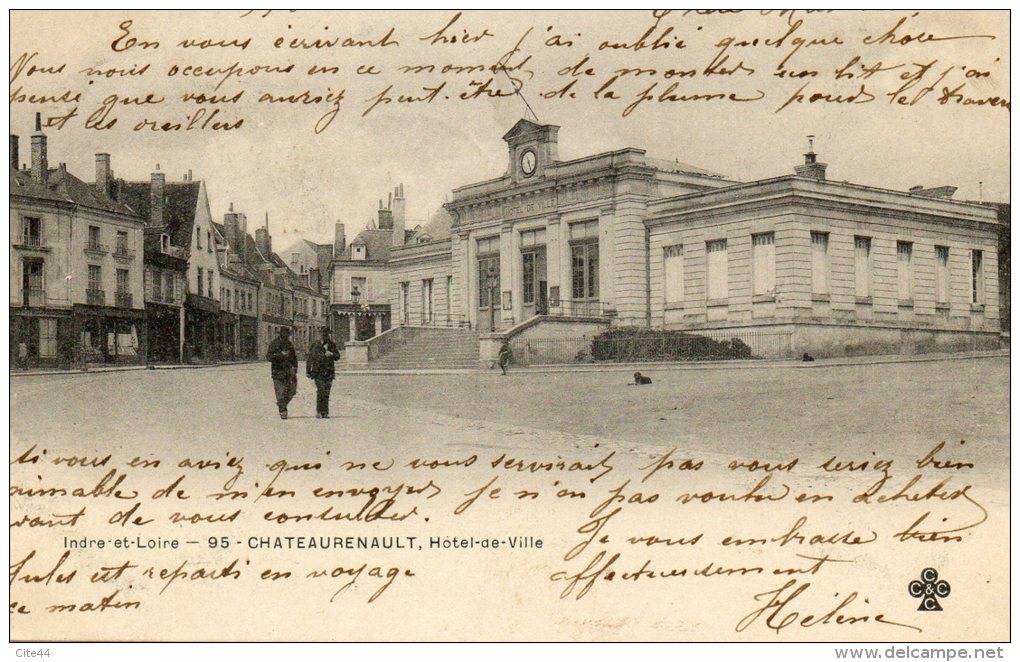 En vous écrivant hier j'ai oublié quelque chose
Nous nous occupons en ce moment de monter un lit et j'ai
pensé que vous auriez peut-être de la plume pour le travers
et les oreillers
HOTEL DE VILLE
si vous en aviez qui ne vous servirait pas vous seriez bien
aimable de m'en envoyer Je n'en pas voulu en acheter
avant de vous consulter.
Je vous embrasse bien
Indre-et-Loire - 95 - CHATEAURENAULT, Hôtel-de-Ville
affectueusement
Jules est reparti en voyage
ce matin
Hélène
C C C & C
Cite44
www.delcampe.net